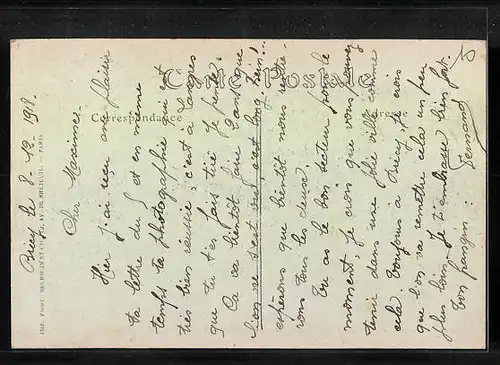 Briey le 8-12-1918.
Cher Maxime.
Hier j'ai reçu avec plaisir
ta lettre du 5 et en même
temps ta photographie qui est
très bien réussie c'est à Langres
que tu t'es fait tiré je pense.
Ca va bientôt faire 1 an que
l'on ne s'est vu c'est long hein!..
espérons que bientôt nous
rons tous les deux.
Tu as le bon secteur pour le
moment, je crois que vous pouvez
tenir dans une jolie ville comme
cela toujours à Briey, je crois
que l'on va remettre cela un peu
plus loin. Je t'embrasse bien fort.
Ton frangin:
Fernand
CARTE POSTALE
Correspondance
Adresse
IMP. PHOT. NEURDEIN ET CIE, 52, AV. DE BRETEUIL. — PARIS